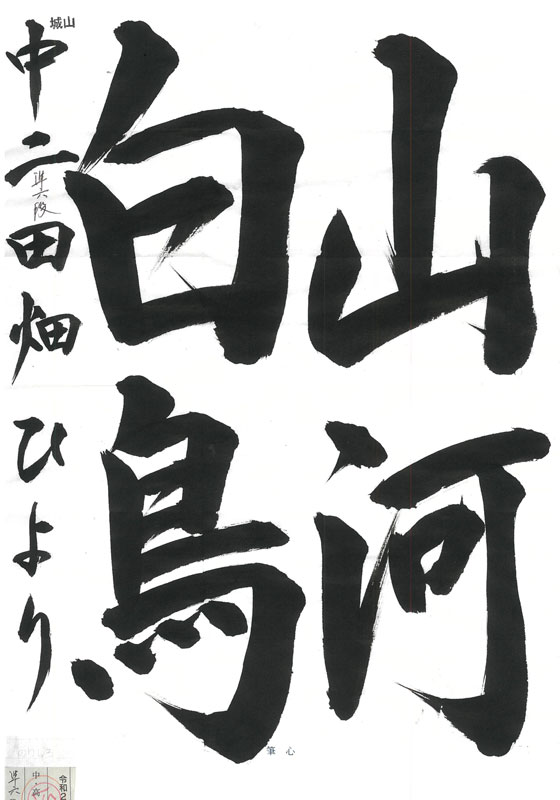 山河
白鳥
城山
中二 準六段 田畑ひより
心筆
令和2
中・高
準六